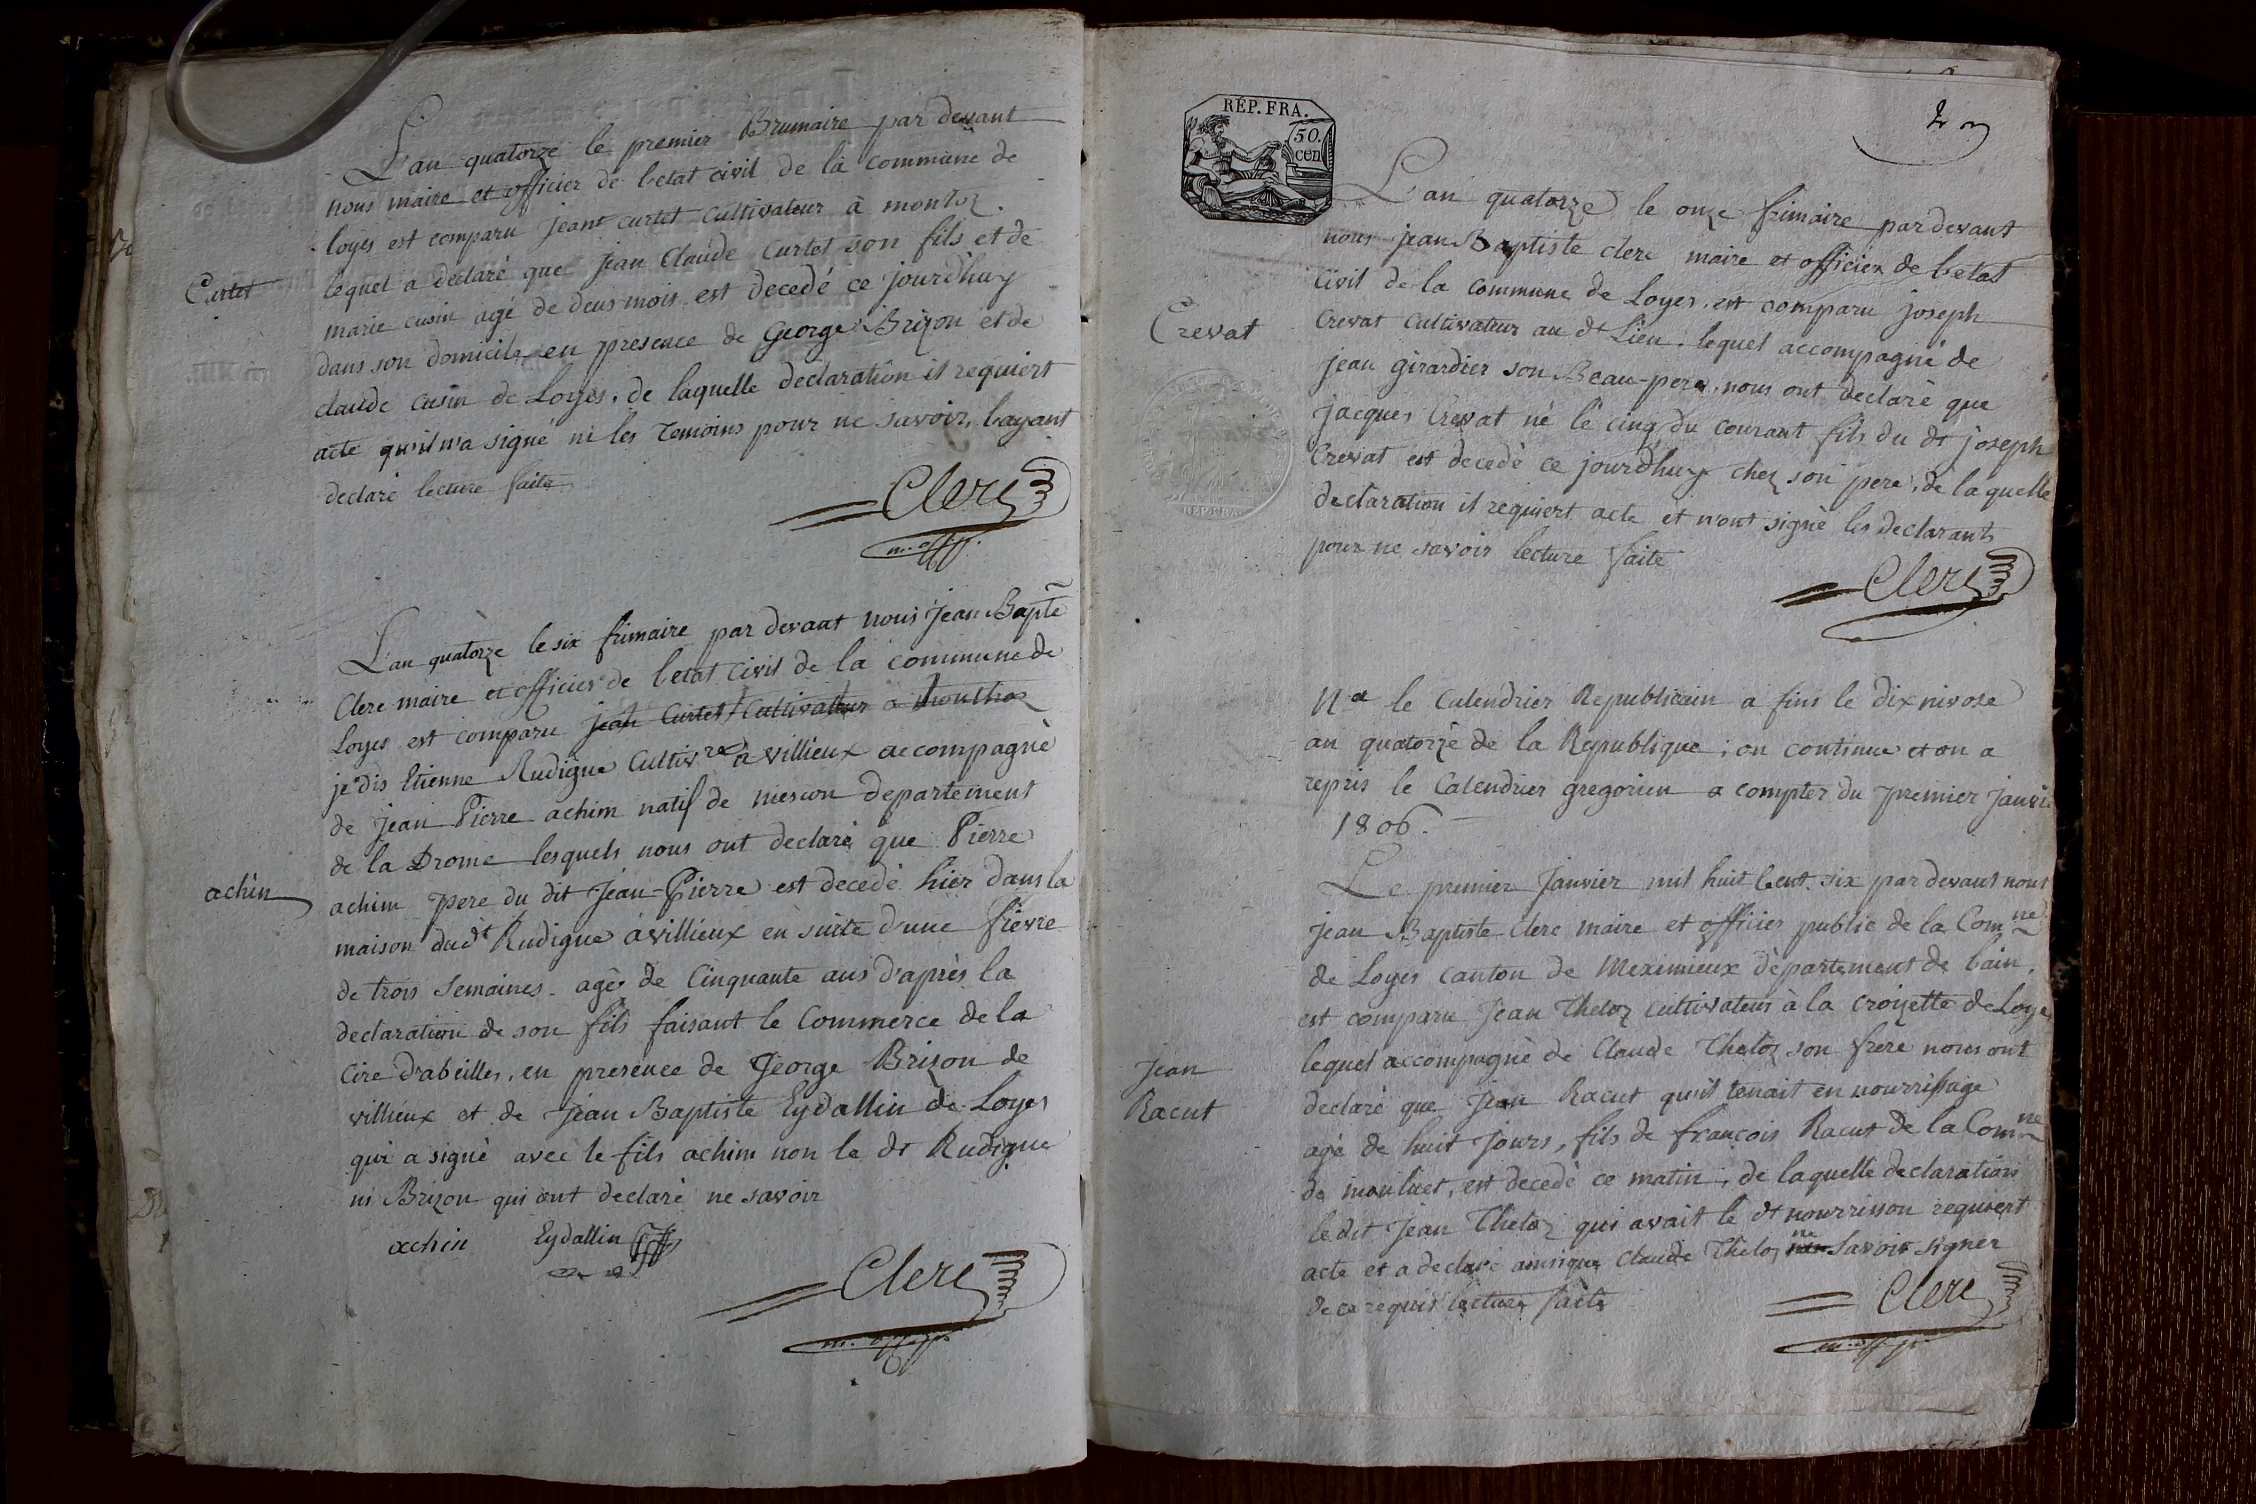 L'an quatorze le premier Brumaire par devant
nous maire et officier de l'etat civil de la commune de
loyes est comparu jean curtet cultivateur à montoz.
lequel a declaré que jean Claude Curtet son fils et de
Curtet
marie cusin agé de deux mois est decedé ce jourdhuy
dans son domicile en presence de George Brizon et de
claude cusin de Loyes, de laquelle declaration il requiert
acte qu'il n'a signé ni les temoins pour ne savoir, l'ayant
declaré lecture faite
Clerc
m. off. p.
L'an quatorze le six frimaire par devant nous jean Bapte
Clerc maire et officier de l'etat civil de la commune de
Loyes est comparu jean Curtet cultivateur a monthoz
je dis Etienne Rudigue Cultivre à villieux accompagné
de jean Pierre achim natif de mescon departement
de la Drome lesquels nous ont declaré que Pierre
achin
achim pere du dit Jean-Pierre est decedé hier dans la
maison du dt Rudigue à villieux en suite d'une fievre
de trois semaines - agés de Cinquante ans d'après la
declaration de son fils faisant le Commerce de la
cire d'abeilles, en presence de George Brizon de
villieux et de Jean Baptiste Eydallin de Loyes
qui a signé avec le fils achim non le dt Rudigue
ni Brizon qui ont declaré ne savoir
achin Eydallin
Clerc
m. off. p.
RÉP. FRA.
50.
cen
2
L'an quatorze le onze frimaire par devant
nous jean Baptiste clerc maire et officier de l'etat
Civil de la Commune de Loyes, est comparu joseph
Crevat
Crevat Cultivateur au dt Lieu, lequel accompagné de
jean girardier son Beau-pere, nous ont declaré que
jacques Crevat né le cinq du courant fils du dt joseph
Crevat est decedé ce jourdhuy chez son pere, de laquelle
declaration il requiert acte et n'ont signé les declarants
pour ne savoir lecture faite
REP.FRA
Clerc
Na le Calendrier Republicain a fini le dix nivose
an quatorze de la Republique; on continue et on a
repris le Calendrier gregorien a compter du premier janvier
1806.
Le premier Janvier mil huit Cent six par devant nous
jean Baptiste Clerc maire et officier public de la Comne
de Loyes canton de Meximieux departement de l'ain,
est comparu Jean Theloz cultivateur à la croizette de Loyes
lequel accompagné de Claude Theloz son frere nous ont
Jean
Racut
declaré que Jean Racut qu'il tenait en nourrissage
agé de huit Jours, fils de françois Racut de la Comne
de montluet, est decedé ce matin, de laquelle declaration
le dit Jean Theloz qui avait le dt nourrisson requiert
acte et a declaré ainsi que Claude Theloz ne savoir signer
de ce requis lecture faite
Clerc
m. off. p.